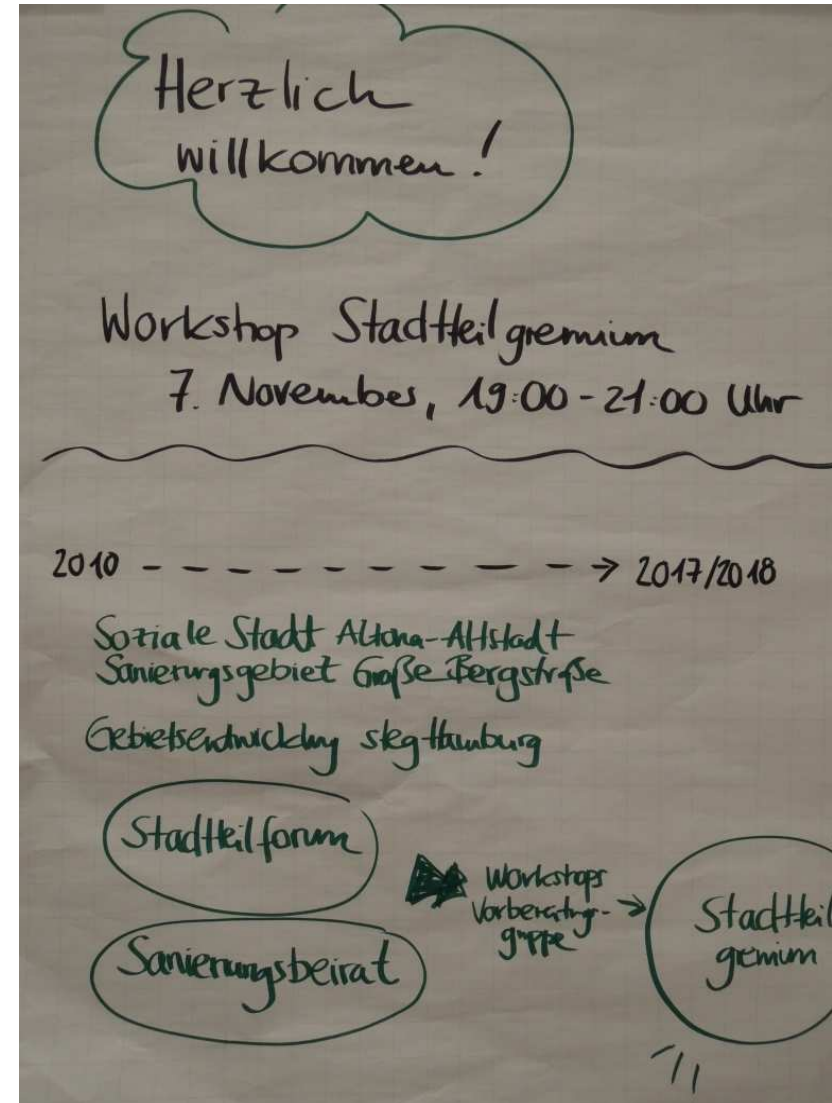 Herzlich
willkommen!
Workshop Stadtteilgremium
7. November, 19:00-21:00 Uhr
2010 - - - - - - - - - → 2017/2018
Soziale Stadt Altona-Altstadt
Sanierungsgebiet Große Bergstraße
Gebietsentwicklung steg Hamburg
Stadtteilforum
Sanierungsbeirat
Workshops
Vorbereitungs-
gruppe
Stadtteil
gremium